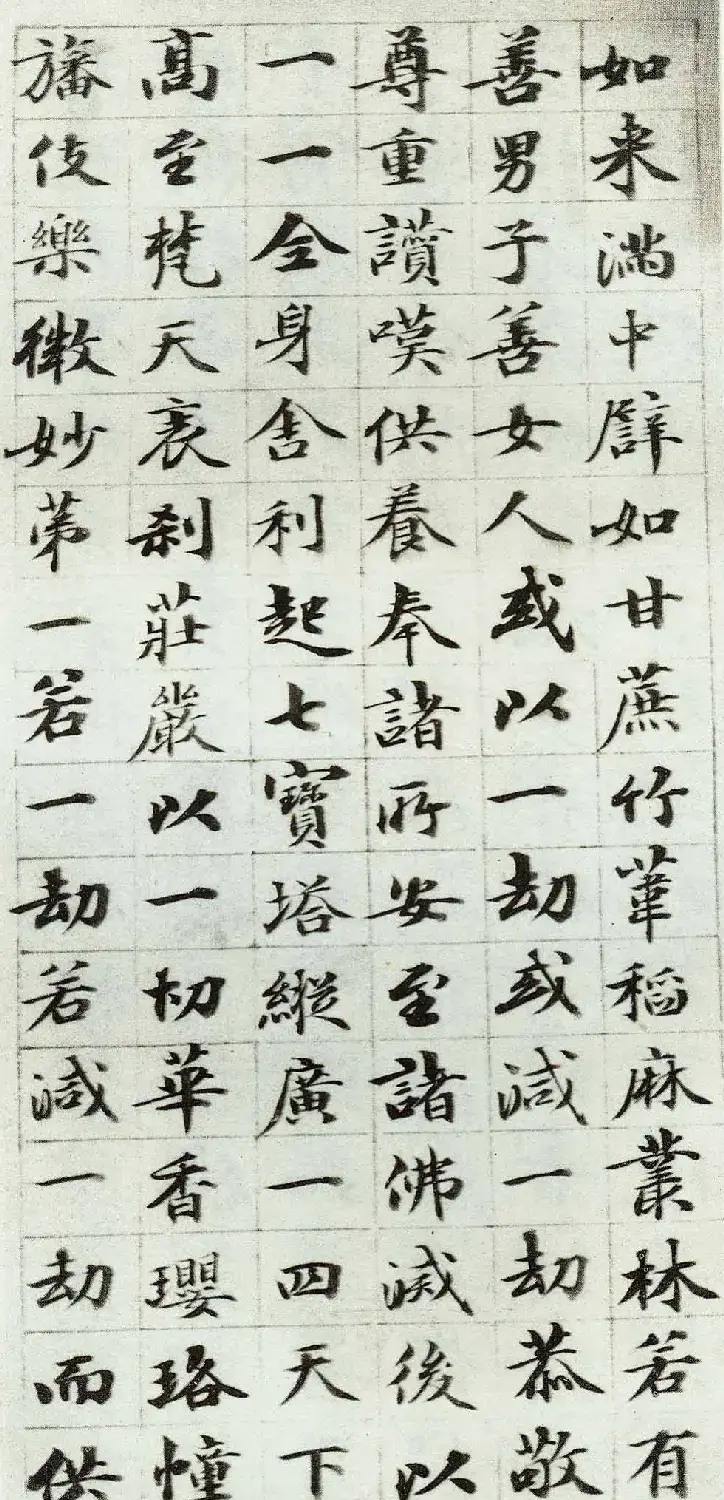 如来滿中譬如甘蔗竹葦稻麻叢林若有
善男子善女人或以一劫或減一劫恭敬
尊重讃嘆供養奉諸所安至諸佛滅後以
一一全身舍利起七寶塔縱廣一四天下
髙至梵天表刹莊嚴以一切華香瓔珞幢
旛伎樂微妙第一若一劫若減一劫而供